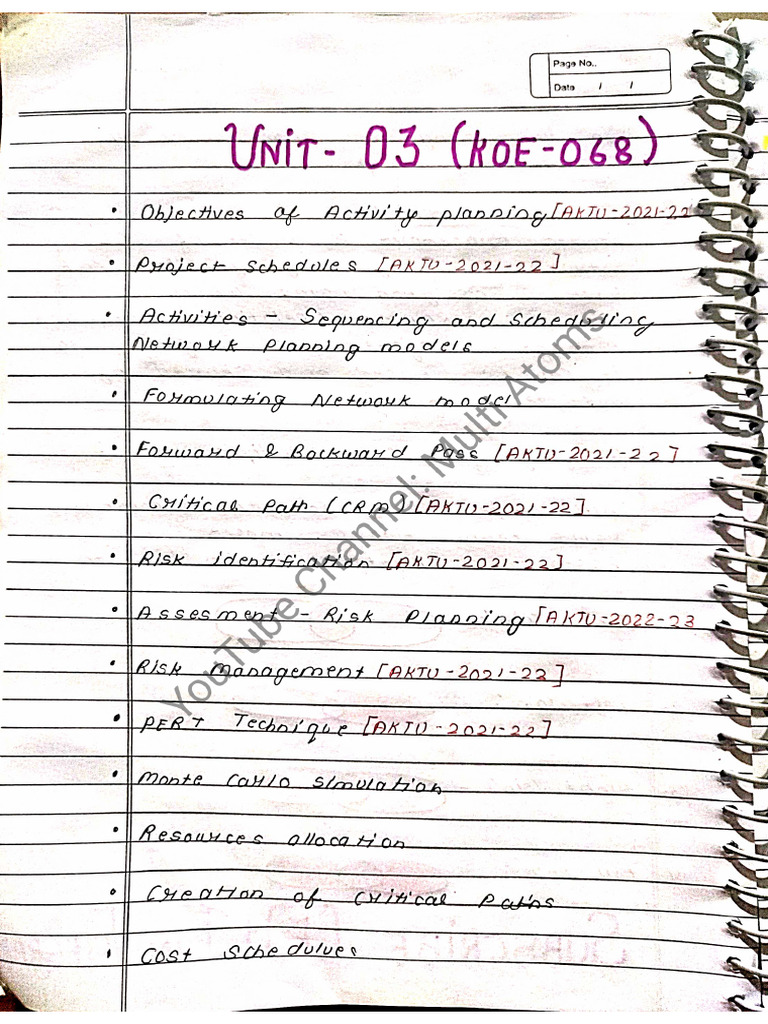 Page No..
Date / /
UNIT- 03 (KOE-068)
• Objectives of Activity planning [AKTU-2021-22
• Project schedules [AKTU-2021-22]
• Activities - Sequencing and Scheduling
Network planning models
• Formulating Network model
• Forward & Backward Pass [AKTU-2021-22]
• Critical Path (CRM) [AKTU-2021-22]
• Risk identification [AKTU-2021-22]
• Assesment - Risk Planning [AKTU-2022-23
• Risk management [AKTU-2021-22]
• PERT Technique [AKTU-2021-22]
• Monte Carlo simulation
• Resources allocation
• Creation of critical Paths
• Cost schedulues
YouTube Channel: Multi Atoms